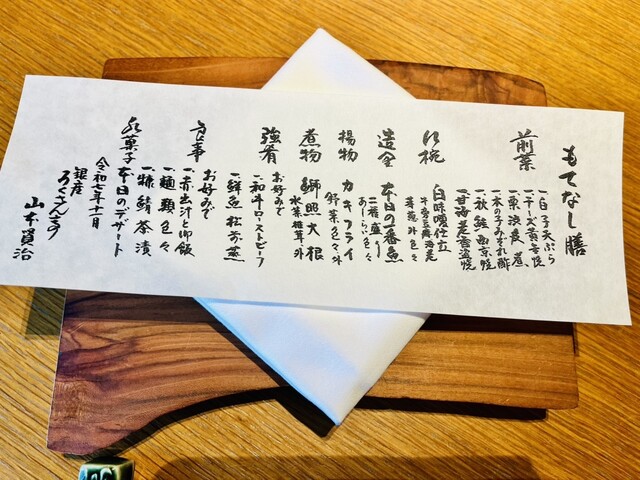 もてなし膳
前菜
一、白子天ぷら
一、チーズ黄金焼
一、栗渋皮煮
一、木の子みぞれ酢
一、秋鮭西京焼
一、甘海老酒盗焼
椀
白味噌仕立
芽葱 外 色々
造里
本日の一番魚
二種盛り
あしらい色々
揚物
カキフライ
野菜色々 外
煮物
鰤照大根
水菜 椎茸 外
強肴
お好みで
一、和牛ローストビーフ
一、鮮魚松前蒸
食事
お好みで
一、赤出汁と御飯
一、麺類色々
一、特鯖茶漬
水菓子
本日のデザート
令和七年十一月
銀座
ろくさん亭
山本賢治